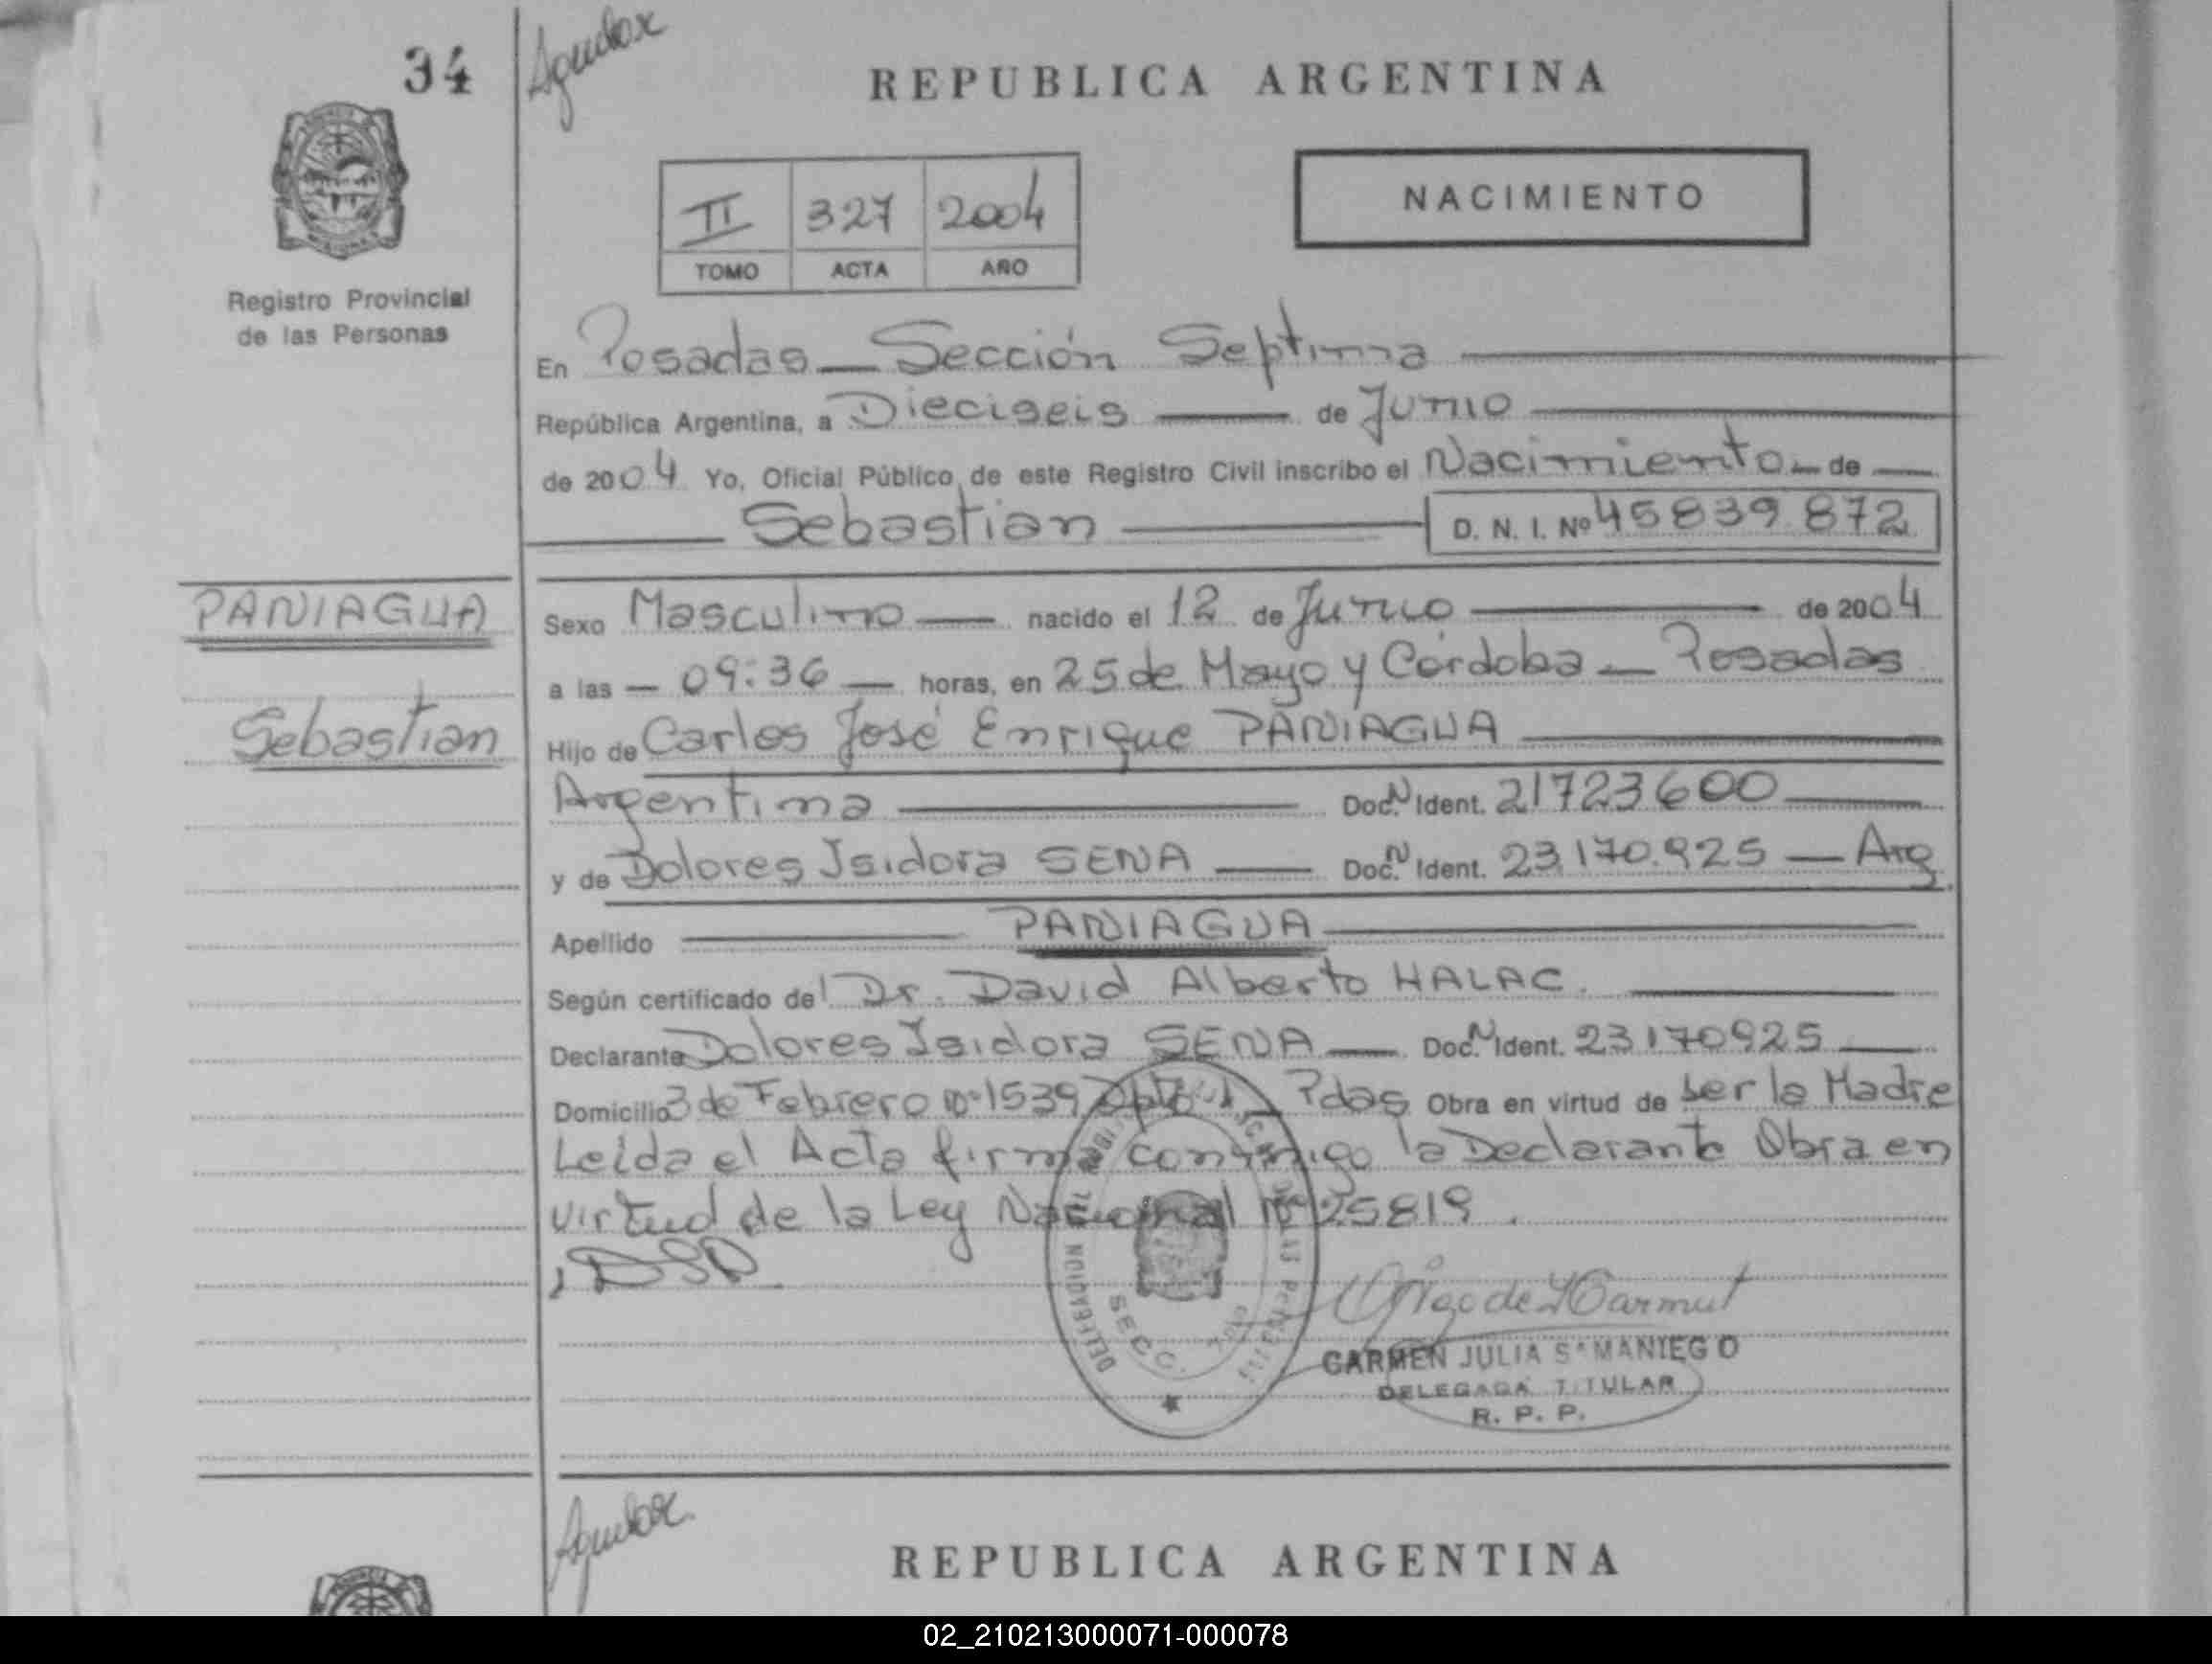 34
Registro Provincial
de las Personas
REPUBLICA ARGENTINA
II 327 2004
TOMO ACTA AÑO
NACIMIENTO
En Posadas — Sección Septima
República Argentina, a Dieciseis de Junio
de 2004 Yo, Oficial Público de este Registro Civil inscribo el Nacimiento de
Sebastian D. N. I. Nº 45839872
PANIAGUA
Sebastian
Sexo Masculino nacido el 12 de Junio de 2004
a las — 09:36 — horas, en 25 de Mayo y Córdoba — Posadas
Hijo de Carlos José Enrique PANIAGUA
Argentina Doc. N Ident. 21723600
y de Dolores Isidora SENA Doc. N Ident. 23.170.925 — Arg.
Apellido PANIAGUA
Según certificado del Dr. David Alberto HALAC.
Declarante Dolores Isidora SENA Doc. N Ident. 23170925
Domicilio 3 de Febrero Nº 1539 Dpto Pdas Obra en virtud de ser la Madre
Leida el Acta firma conmigo la Declarante Obra en
virtud de la Ley Nacional Nº 25819.
SECC.
CARMEN JULIA SAMANIEGO
DELEGADA TITULAR
R. P. P.
REPUBLICA ARGENTINA
02_210213000071-000078